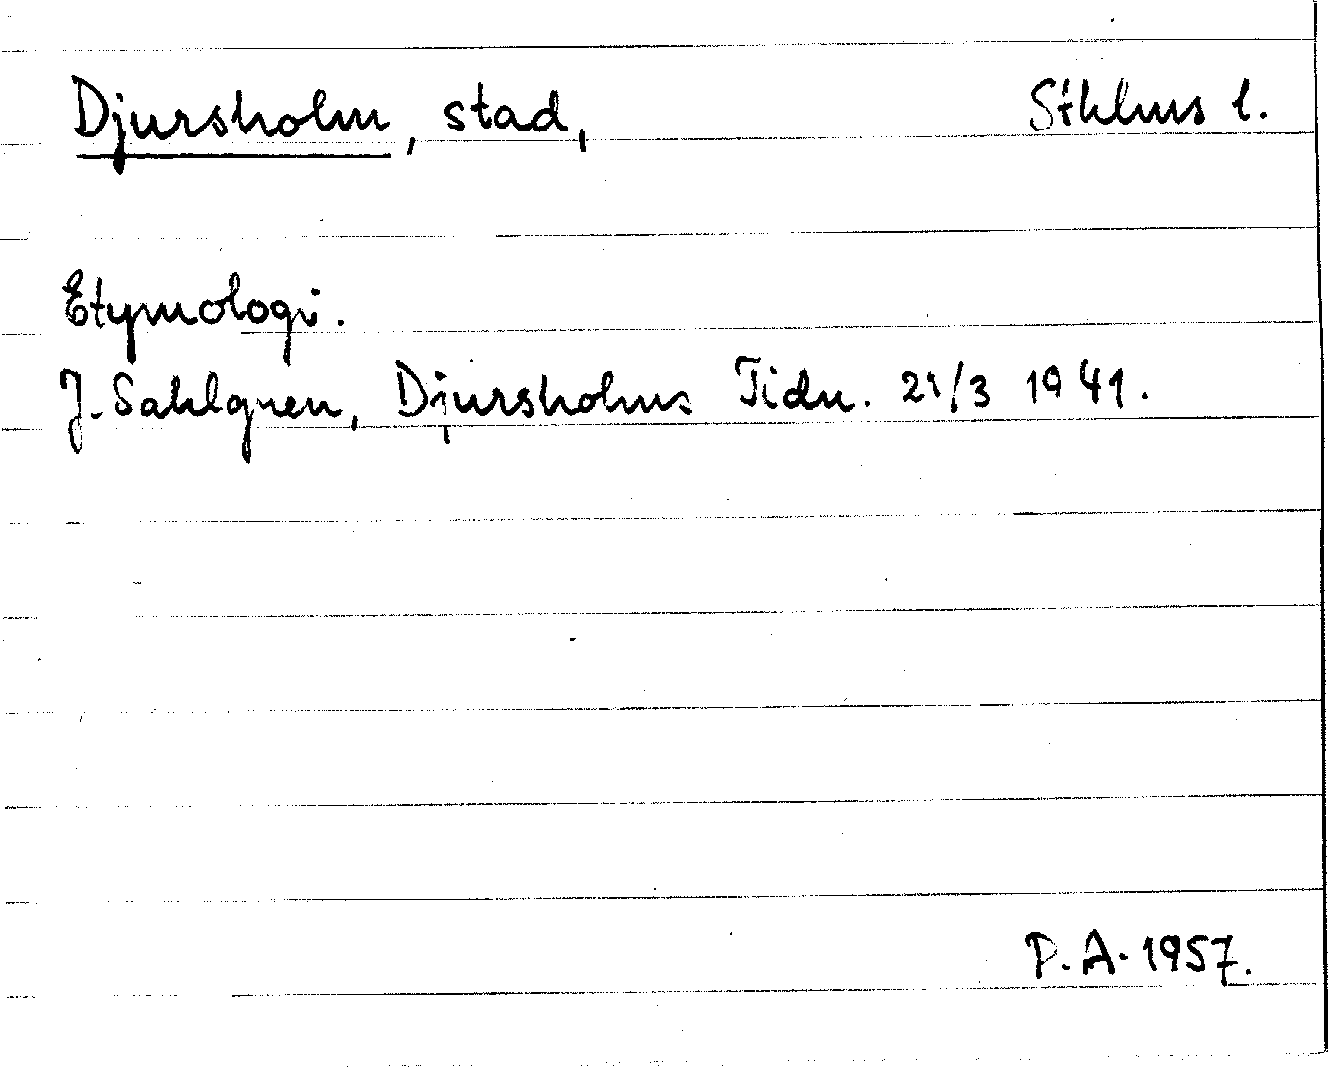 Djursholm, stad, Sthlms l.
Etymologi.
J. Sahlgren, Djursholms Tidn. 21/3 1941.
P. A. 1957.